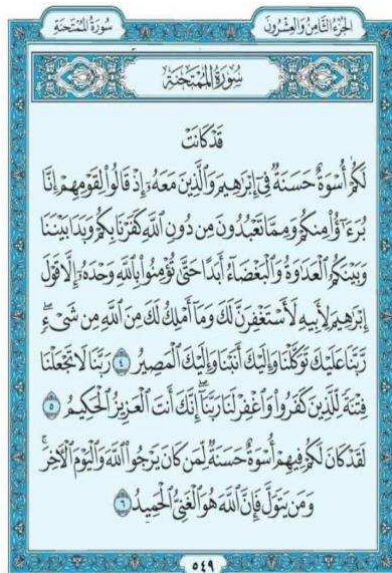 الجزء الثامن والعشرون
سورة الممتحنة
سُورَةُ الْمُمْتَحِنَةِ
قَدْ كَانَتْ
لَكُمْ أُسْوَةٌ حَسَنَةٌ فِي إِبْرَاهِيمَ وَالَّذِينَ مَعَهُ إِذْ قَالُوا لِقَوْمِهِمْ إِنَّا
بُرَءَاؤُا مِنكُمْ وَمِمَّا تَعْبُدُونَ مِن دُونِ اللَّهِ كَفَرْنَا بِكُمْ وَبَدَا بَيْنَنَا
وَبَيْنَكُمُ الْعَدَاوَةُ وَالْبَغْضَاءُ أَبَدًا حَتَّى تُؤْمِنُوا بِاللَّهِ وَحْدَهُ إِلَّا قَوْلَ
إِبْرَاهِيمَ لِأَبِيهِ لَأَسْتَغْفِرَنَّ لَكَ وَمَا أَمْلِكُ لَكَ مِنَ اللَّهِ مِن شَيْءٍ
رَّبَّنَا عَلَيْكَ تَوَكَّلْنَا وَإِلَيْكَ أَنَبْنَا وَإِلَيْكَ الْمَصِيرُ ٤ رَبَّنَا لَا تَجْعَلْنَا
فِتْنَةً لِّلَّذِينَ كَفَرُوا وَاغْفِرْ لَنَا رَبَّنَا إِنَّكَ أَنتَ الْعَزِيزُ الْحَكِيمُ ٥
لَقَدْ كَانَ لَكُمْ فِيهِمْ أُسْوَةٌ حَسَنَةٌ لِّمَن كَانَ يَرْجُو اللَّهَ وَالْيَوْمَ الْآخِرَ
وَمَن يَتَوَلَّ فَإِنَّ اللَّهَ هُوَ الْغَنِيُّ الْحَمِيدُ ٦
٥٤٩